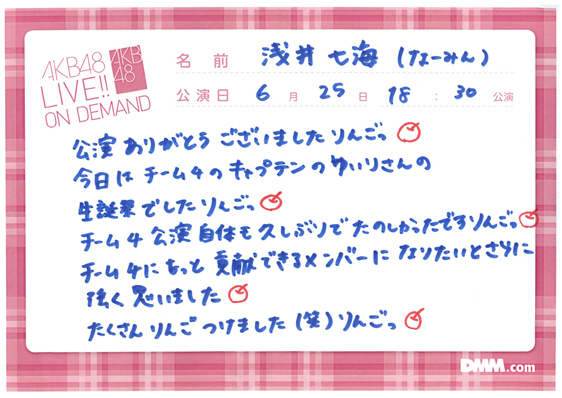 AKB48
LIVE!!
ON DEMAND
AKB
48
名前 浅井七海(なーみん)
公演日 6月25日 18:30公演
公演ありがとうございましたりんごっ
今日はチーム4のキャプテンのゆいりさんの
生誕祭でしたりんごっ
チーム4公演自体も久しぶりでたのしかったですりんごっ
チーム4にもっと貢献できるメンバーになりたいとさらに
強く思いました
たくさんりんごつけました(笑)りんごっ
DMM.com